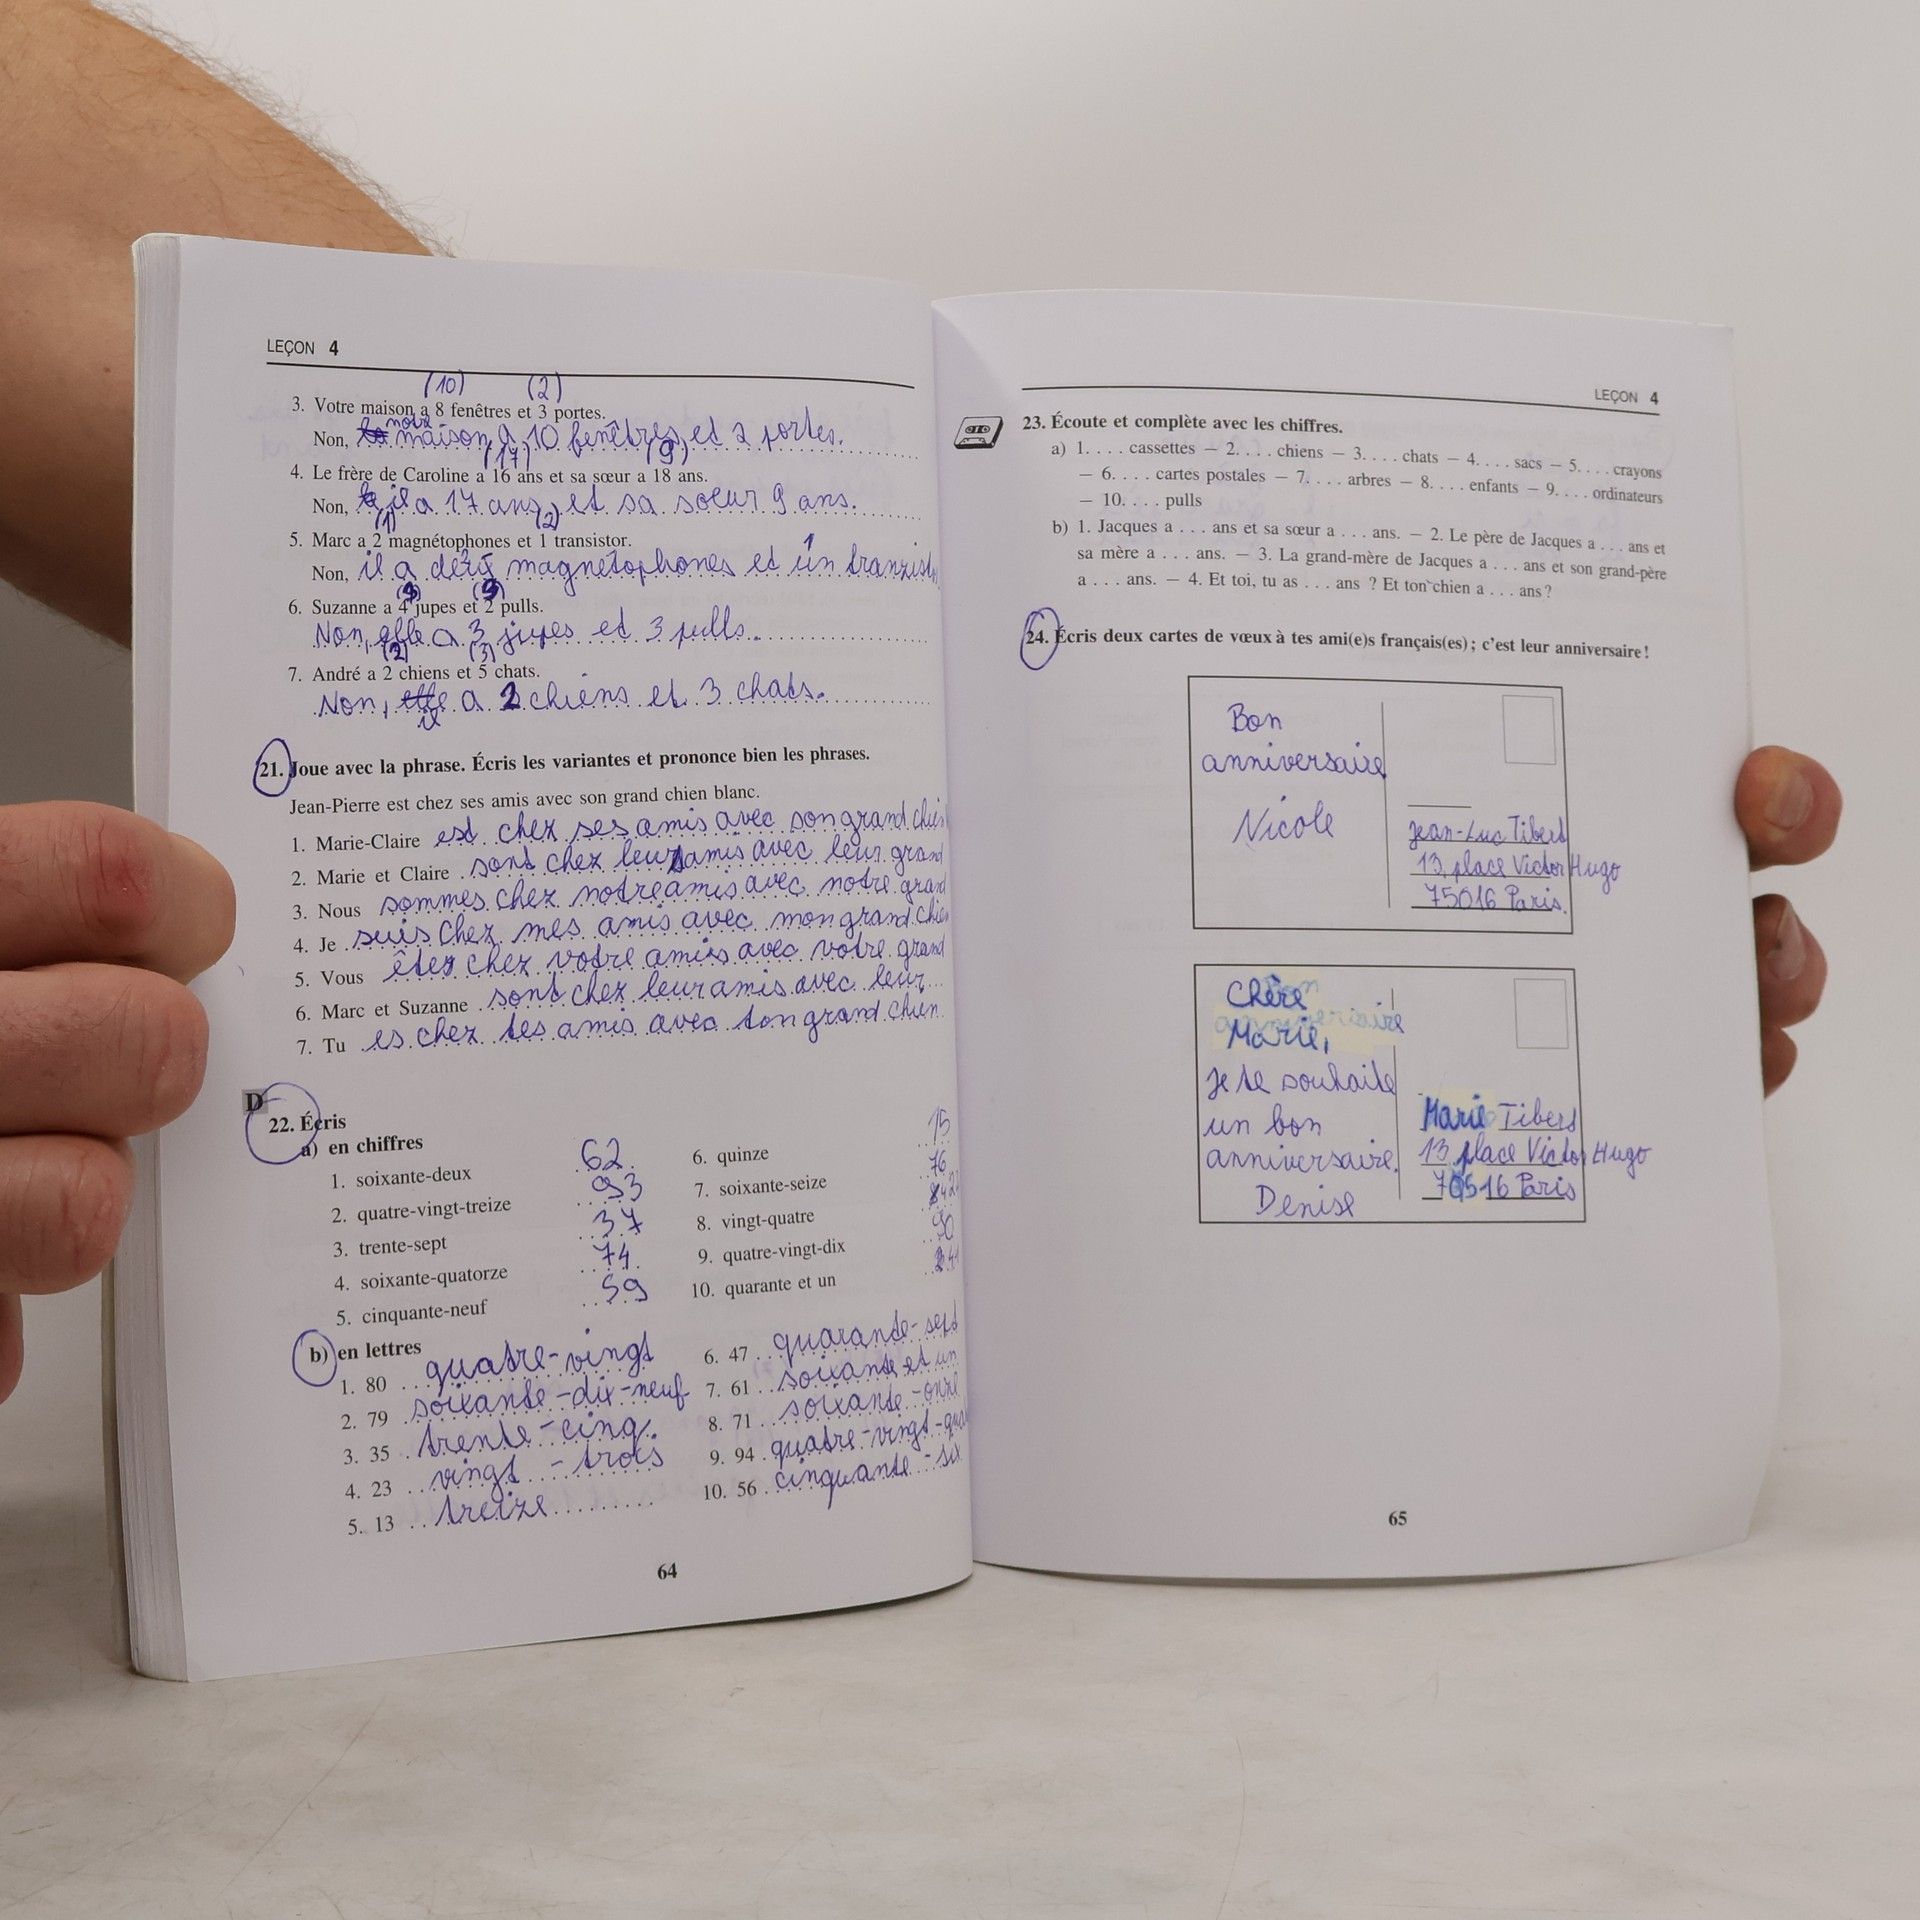 LEÇON 4
(10) (2)
3. Votre maison a 8 fenêtres et 3 portes.
notre
Non, maison a 10 fenêtres et 2 portes.
(17) (9)
4. Le frère de Caroline a 16 ans et sa sœur a 18 ans.
Non, il a 17 ans, et sa soeur 9 ans.
(1) (2)
5. Marc a 2 magnétophones et 1 transistor.
Non, il a magnetophones et un
6. Suzanne a 4 jupes et 2 pulls.
Non, elle a 3 jupes et 3 pulls.
(2) (3)
7. André a 2 chiens et 5 chats.
Non, elle a 2 chiens et 3 chats.
il
21. Joue avec la phrase. Écris les variantes et prononce bien les phrases.
Jean-Pierre est chez ses amis avec son grand chien blanc.
1. Marie-Claire est chez ses amis avec son grand chien
2. Marie et Claire sont chez leurs amis avec leur grand
3. Nous sommes chez notre amis avec notre grand
4. Je suis chez mes amis avec mon grand chien
5. Vous êtes chez votre amis avec votre grand
6. Marc et Suzanne sont chez leur amis avec leur
7. Tu es chez tes amis avec ton grand chien
D
22. Écris
a) en chiffres
1. soixante-deux 62
2. quatre-vingt-treize 93
3. trente-sept 37
4. soixante-quatorze 74
5. cinquante-neuf 59
6. quinze 15
7. soixante-seize 76
8. vingt-quatre
9. quatre-vingt-dix 90
10. quarante et un
b) en lettres
1. 80 quatre-vingt
2. 79 soixante-dix-neuf
3. 35 trente-cinq
4. 23 vingt-trois
5. 13 treize
6. 47 quarante-sept
7. 61 soixante et un
8. 71 soixante-onze
9. 94 quatre-vingt-qua
10. 56 cinquante-six
64
LEÇON 4
23. Écoute et complète avec les chiffres.
a) 1. . . . cassettes – 2. . . . chiens – 3. . . . chats – 4. . . . sacs – 5. . . . crayons
– 6. . . . cartes postales – 7. . . . arbres – 8. . . . enfants – 9. . . . ordinateurs
– 10. . . . pulls
b) 1. Jacques a . . . ans et sa sœur a . . . ans. – 2. Le père de Jacques a . . . ans et
sa mère a . . . ans. – 3. La grand-mère de Jacques a . . . ans et son grand-père
a . . . ans. – 4. Et toi, tu as . . . ans ? Et ton chien a . . . ans ?
24. Écris deux cartes de vœux à tes ami(e)s français(es) ; c'est leur anniversaire !
Bon
anniversaire
Nicole
Jean-Luc Tibert
13, place Victor Hugo
75016 Paris.
Chère
Marie,
je te souhaite
un bon
anniversaire.
Denise
Marie Tibert
13 place Victor Hugo
75016 Paris
65